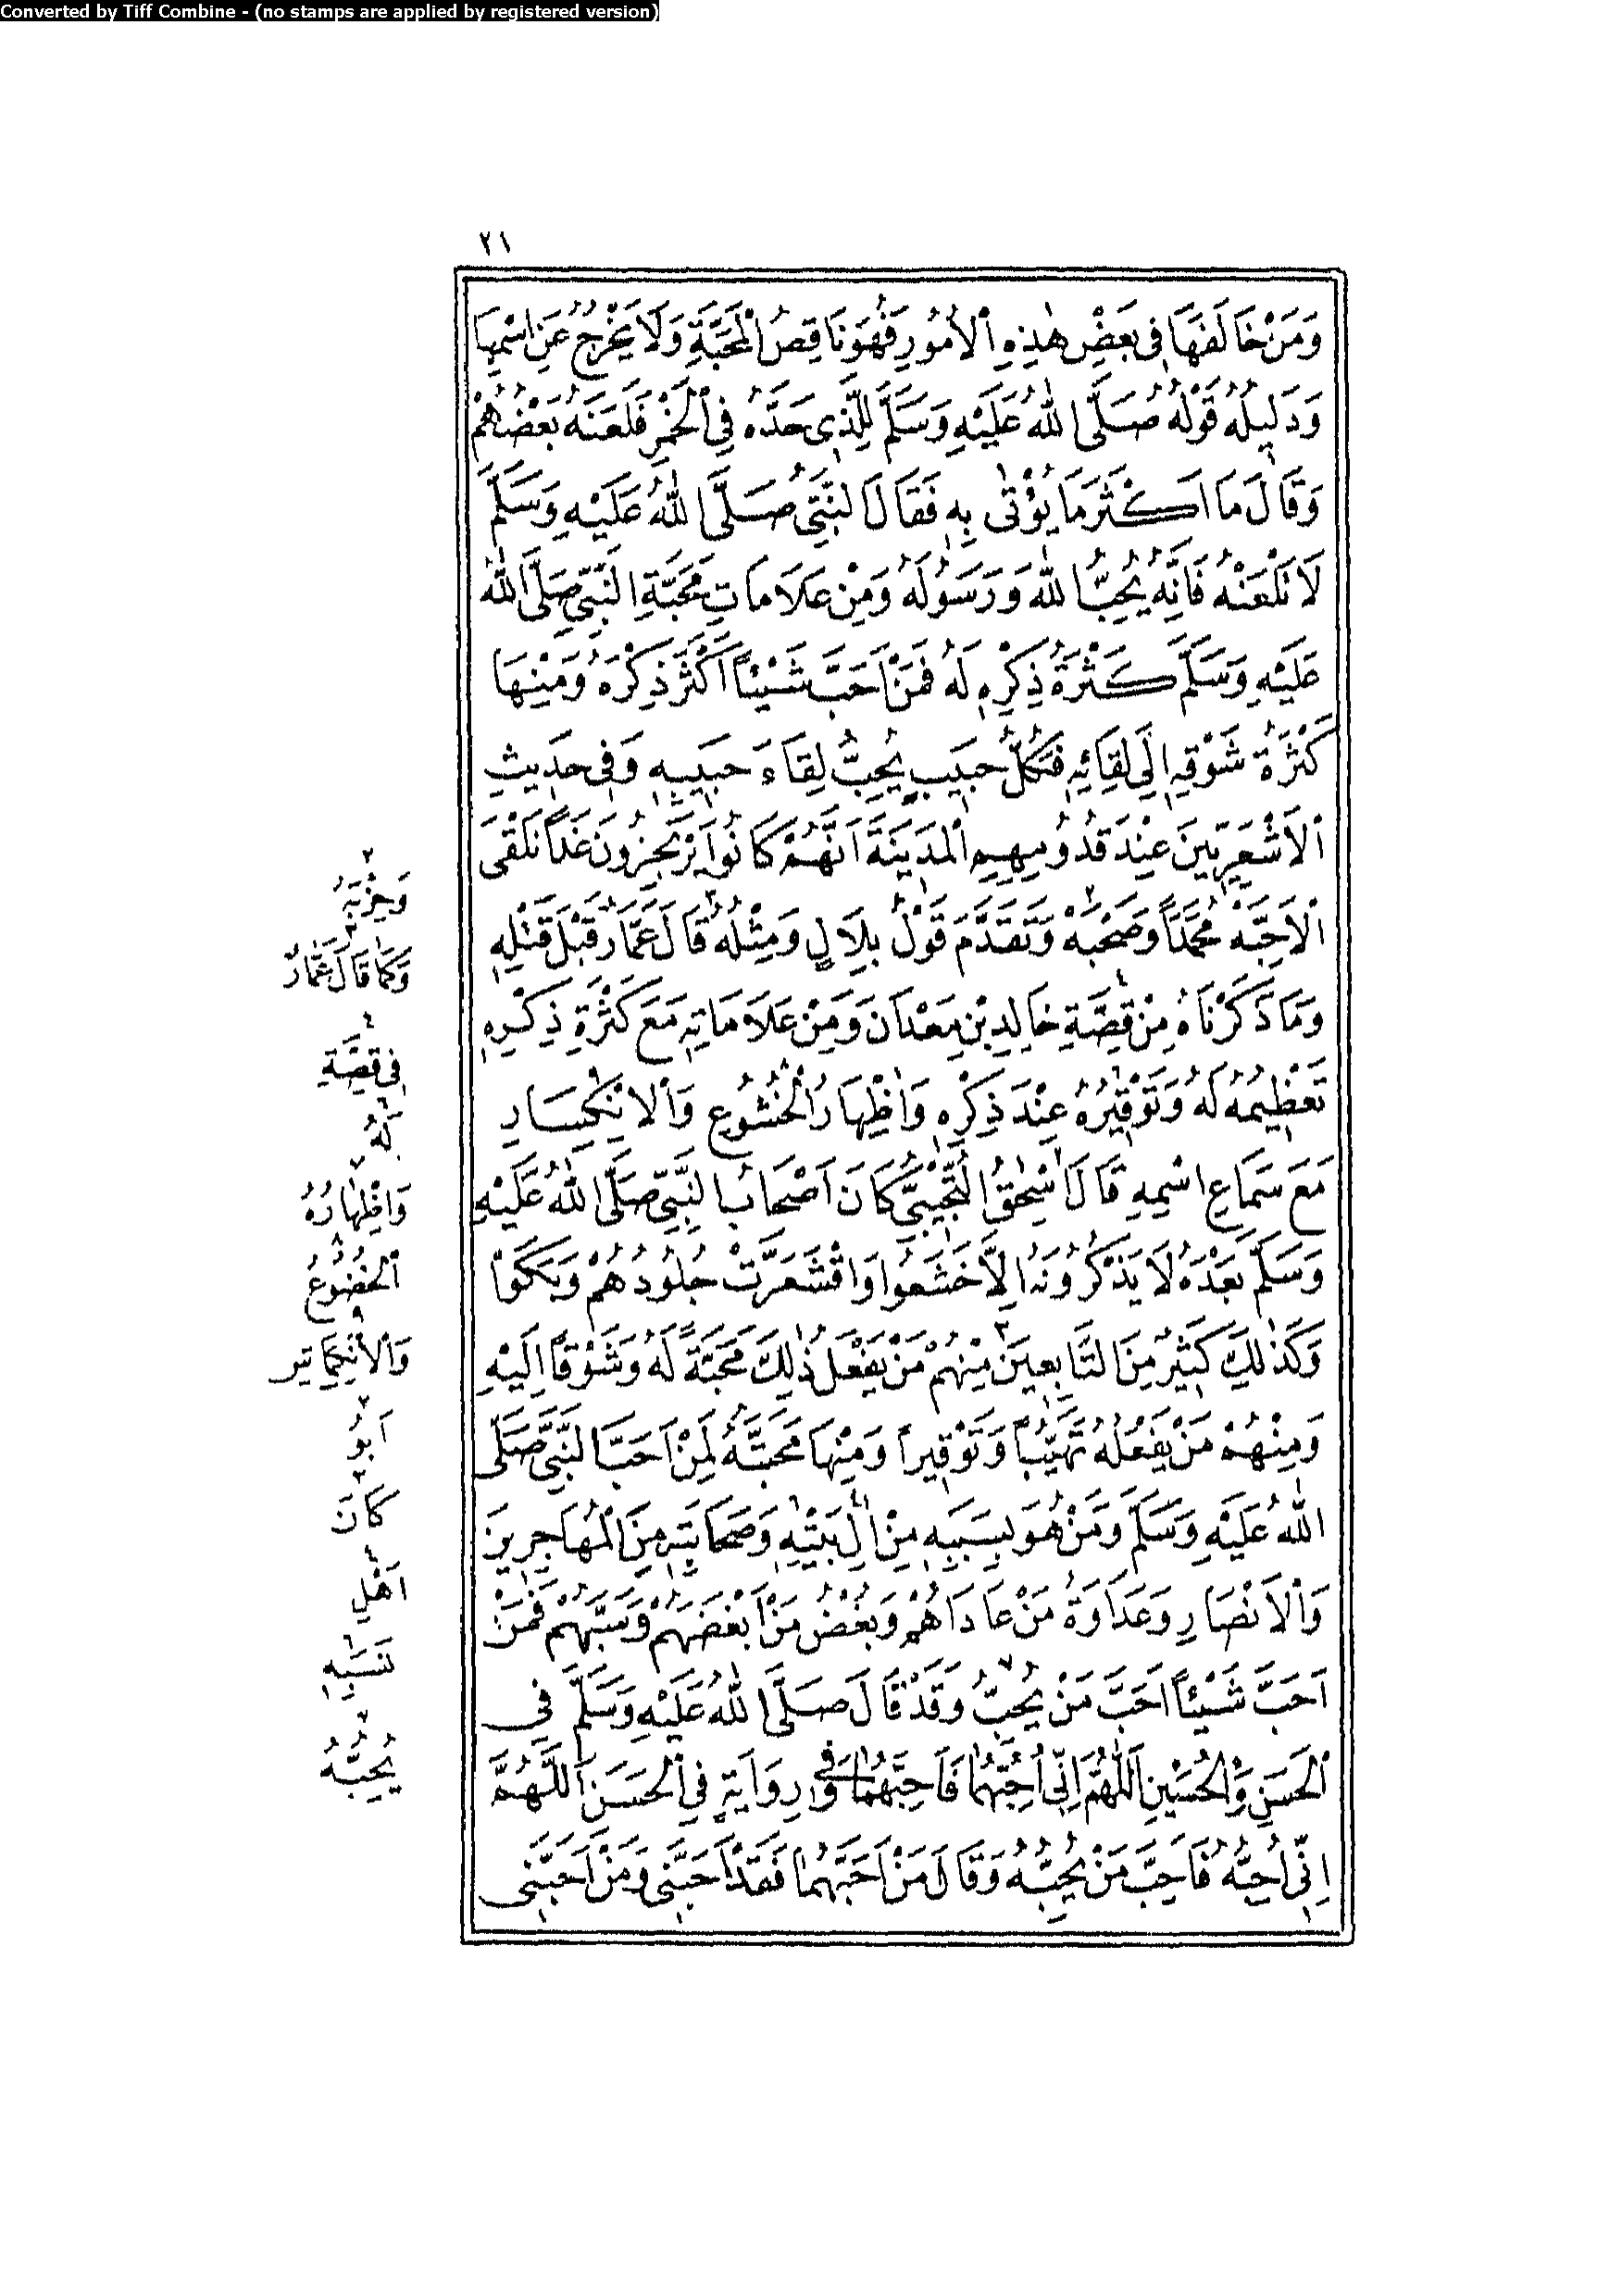 Converted by Tiff Combine - (no stamps are applied by registered version)
٢١
وَمَنْ خَالَفَهَا فِي بَعْضِ هٰذِهِ الْأُمُورِ فَهُوَ نَاقِصُ الْمَحَبَّةِ وَلَا يَخْرُجُ عَنِ اسْمِهَا
وَدَلِيلُهُ قَوْلُهُ صَلَّى اللهُ عَلَيْهِ وَسَلَّمَ لِلَّذِي حَدَّهُ فِي الْخَمْرِ فَلَعَنَهُ بَعْضُهُمْ
وَقَالَ مَا اَكْثَرَ مَا يُؤْتٰى بِهِ فَقَالَ النَّبِيُّ صَلَّى اللهُ عَلَيْهِ وَسَلَّمَ
لَا تَلْعَنْهُ فَاِنَّهُ يُحِبُّ اللهَ وَرَسُولَهُ وَمِنْ عَلَامَاتِ مَحَبَّةِ النَّبِيِّ صَلَّى اللهُ
عَلَيْهِ وَسَلَّمَ كَثْرَةُ ذِكْرِهِ لَهُ فَمَنْ اَحَبَّ شَيْئًا اَكْثَرَ ذِكْرَهُ وَمِنْهَا
كَثْرَةُ شَوْقِهِ اِلَى لِقَائِهِ فَكُلُّ حَبِيبٍ يُحِبُّ لِقَاءَ حَبِيبِهِ وَفِي حَدِيثِ
الْاَشْعَرِيِّينَ عِنْدَ قُدُومِهِمِ الْمَدِينَةَ اَنَّهُمْ كَانُوا يَرْتَجِزُونَ غَدًا نَلْقَى
الْاَحِبَّهْ مُحَمَّدًا وَصَحْبَهْ وَتَقَدَّمَ قَوْلُ بِلَالٍ وَمِثْلَهُ قَالَ عَمَّارٌ قَبْلَ قَتْلِهِ
وَمَا ذَكَرْنَاهُ مِنْ قِصَّةِ خَالِدِ بْنِ مَعْدَانَ وَمِنْ عَلَامَاتِهِ مَعَ كَثْرَةِ ذِكْرِهِ
تَعْظِيمُهُ لَهُ وَتَوْقِيرُهُ عِنْدَ ذِكْرِهِ وَاِظْهَارُ الْخُشُوعِ وَالْاِنْكِسَارِ
مَعَ سَمَاعِ اسْمِهِ قَالَ اِسْحٰقُ التُّجِيبِيُّ كَانَ اَصْحَابُ النَّبِيِّ صَلَّى اللهُ عَلَيْهِ
وَسَلَّمَ بَعْدَهُ لَا يَذْكُرُونَهُ اِلَّا خَشَعُوا وَاقْشَعَرَّتْ جُلُودُهُمْ وَبَكَوْا
وَكَذٰلِكَ كَثِيرٌ مِنَ التَّابِعِينَ مِنْهُمْ مَنْ يَفْعَلُ ذٰلِكَ مَحَبَّةً لَهُ وَشَوْقًا اِلَيْهِ
وَمِنْهُمْ مَنْ يَفْعَلُهُ تَهَيُّبًا وَتَوْقِيرًا وَمِنْهَا مَحَبَّتُهُ لِمَنْ اَحَبَّ النَّبِيَّ صَلَّى
اللهُ عَلَيْهِ وَسَلَّمَ وَمَنْ هُوَ بِسَبَبِهِ مِنْ اٰلِ بَيْتِهِ وَصَحَابَتِهِ مِنَ الْمُهَاجِرِينَ
وَالْاَنْصَارِ وَعَدَاوَةُ مَنْ عَادَاهُمْ وَبُغْضُ مَنْ اَبْغَضَهُمْ وَسَبَّهُمْ فَمَنْ
اَحَبَّ شَيْئًا اَحَبَّ مَنْ يُحِبُّ وَقَدْ قَالَ صَلَّى اللهُ عَلَيْهِ وَسَلَّمَ فِي
الْحَسَنِ وَالْحُسَيْنِ اَللّٰهُمَّ اِنِّي اُحِبُّهُمَا فَاَحِبَّهُمَا وَفِي رِوَايَةٍ فِي الْحَسَنِ اَللّٰهُمَّ
اِنِّي اُحِبُّهُ فَاَحِبَّ مَنْ يُحِبُّهُ وَقَالَ مَنْ اَحَبَّهُمَا فَقَدْ اَحَبَّنِي وَمَنْ اَحَبَّنِي
٢
وَحِزْبَهُ
٣
وَكَمَا قَالَ عَمَّارٌ
٤
فِي قِصَّةِ
٦
لَهُ
٧
وَاِظْهَارُهُ
٨
الْخُضُوعُ
٩
وَالْاِنْكِمَاتِ
٢
اَبُو
٣
كَانَ
٤
اَهْلِ
١
نَسَبِهِ
٧
يُحِبُّهُ